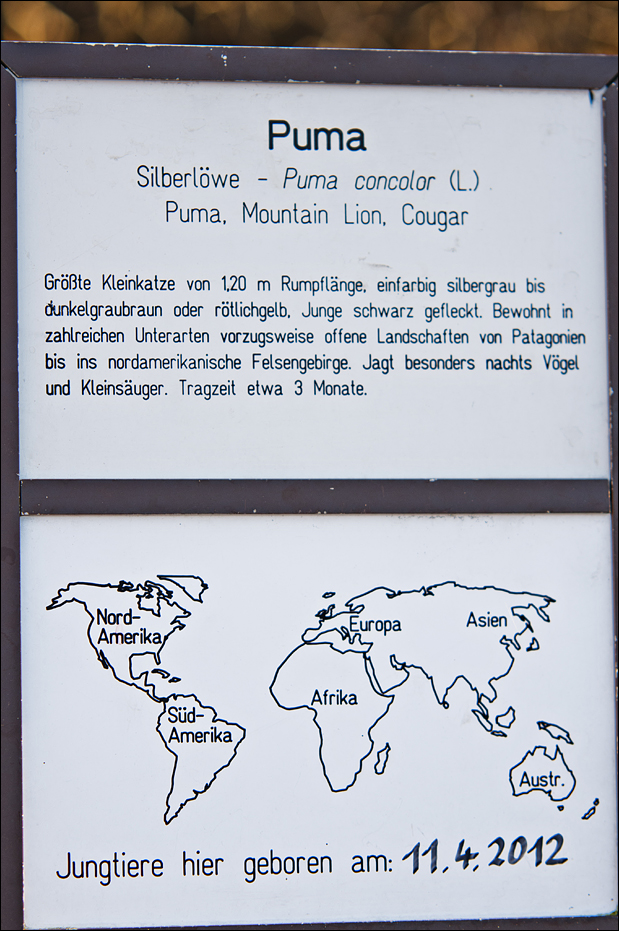 Puma
Silberlöwe - Puma concolor (L.)
Puma, Mountain Lion, Cougar
Größte Kleinkatze von 1,20 m Rumpflänge, einfarbig silbergrau bis
dunkelgraubraun oder rötlichgelb, Junge schwarz gefleckt. Bewohnt in
zahlreichen Unterarten vorzugsweise offene Landschaften von Patagonien
bis ins nordamerikanische Felsengebirge. Jagt besonders nachts Vögel
und Kleinsäuger. Tragzeit etwa 3 Monate.
Nord-
Amerika
Europa
Asien
Afrika
Süd-
Amerika
Austr.
Jungtiere hier geboren am: 11.4.2012